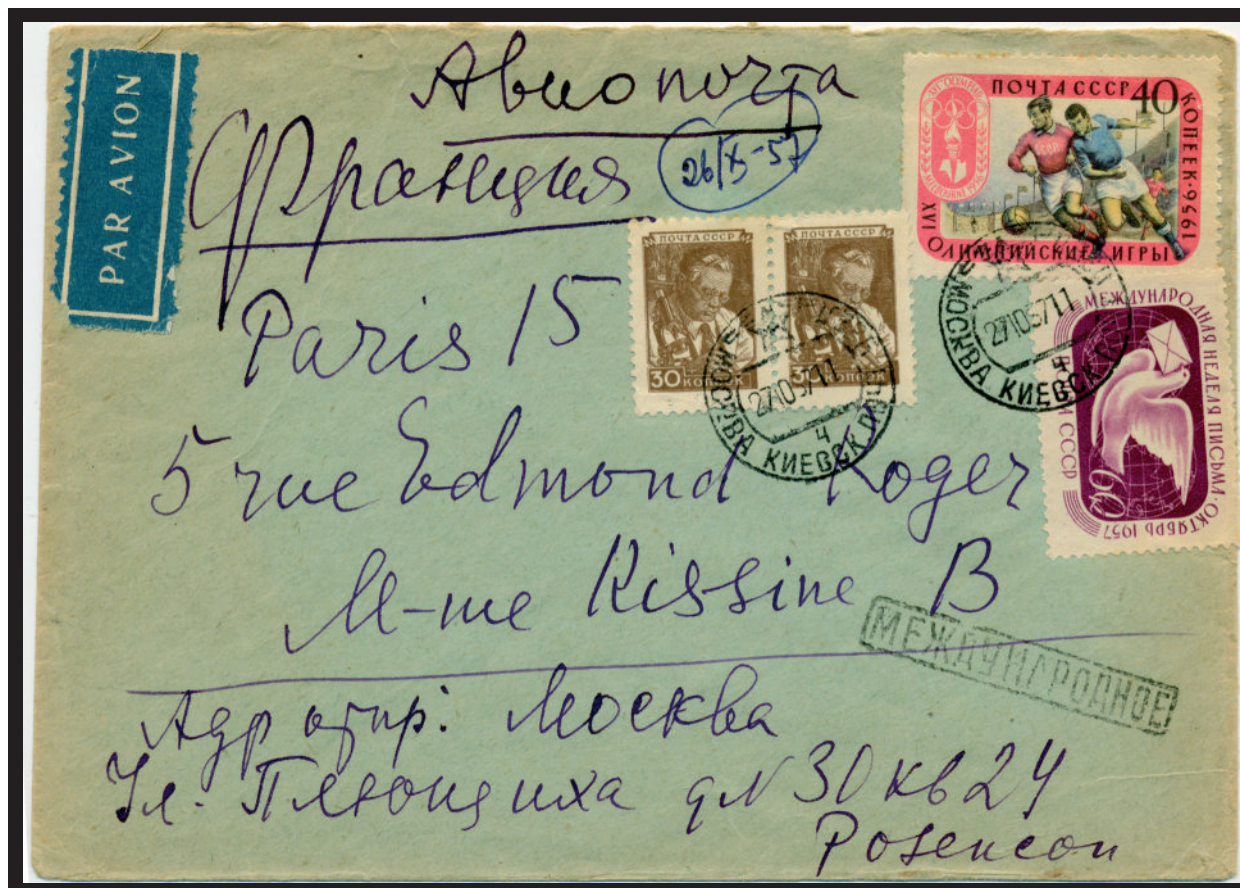 PAR AVION
Авиопочта
Франция
26/X-57
ПОЧТА СССР 40 КОПЕЕК·1956
XVI ОЛИМПИЙСКИЕ ИГРЫ
ПОЧТА СССР
30 КОПЕЕК
ПОЧТА СССР
МОСКВА КИЕВСК
271057 11
ч
МОСКВА КИЕВСК
271057 11
ч
МЕЖДУНАРОДНАЯ НЕДЕЛЯ ПИСЬМА·ОКТЯБРЬ 1957
ПОЧТА СССР
60
Paris 15
5 rue Edmond Roger
M-me Kissine B
МЕЖДУНАРОДНОЕ
Адр отпр: Москва
Ул. Плющиха д N 30 кв 24
Розенсон